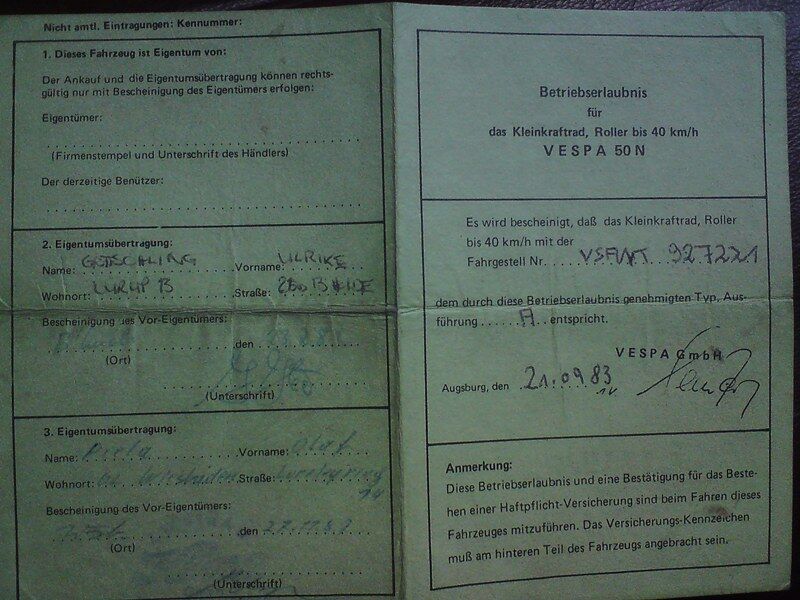 Nicht amtl. Eintragungen: Kennummer:
1. Dieses Fahrzeug ist Eigentum von:
Der Ankauf und die Eigentumsübertragung können rechts-
gültig nur mit Bescheinigung des Eigentümers erfolgen:
Eigentümer:
(Firmenstempel und Unterschrift des Händlers)
Der derzeitige Benützer:
2. Eigentumsübertragung:
Name: Vorname: ULRIKE
Wohnort: Straße:
Bescheinigung des Vor-Eigentümers:
den
(Ort)
(Unterschrift)
3. Eigentumsübertragung:
Name: Vorname: Olaf
Wohnort: Straße:
Bescheinigung des Vor-Eigentümers:
den
(Ort)
(Unterschrift)
Betriebserlaubnis
für
das Kleinkraftrad, Roller bis 40 km/h
VESPA 50 N
Es wird bescheinigt, daß das Kleinkraftrad, Roller
bis 40 km/h mit der
Fahrgestell Nr. 927221
dem durch diese Betriebserlaubnis genehmigten Typ, Aus-
führung A entspricht.
VESPA GmbH
Augsburg, den 21.09.83
Anmerkung:
Diese Betriebserlaubnis und eine Bestätigung für das Beste-
hen einer Haftpflicht-Versicherung sind beim Fahren dieses
Fahrzeuges mitzuführen. Das Versicherungs-Kennzeichen
muß am hinteren Teil des Fahrzeugs angebracht sein.